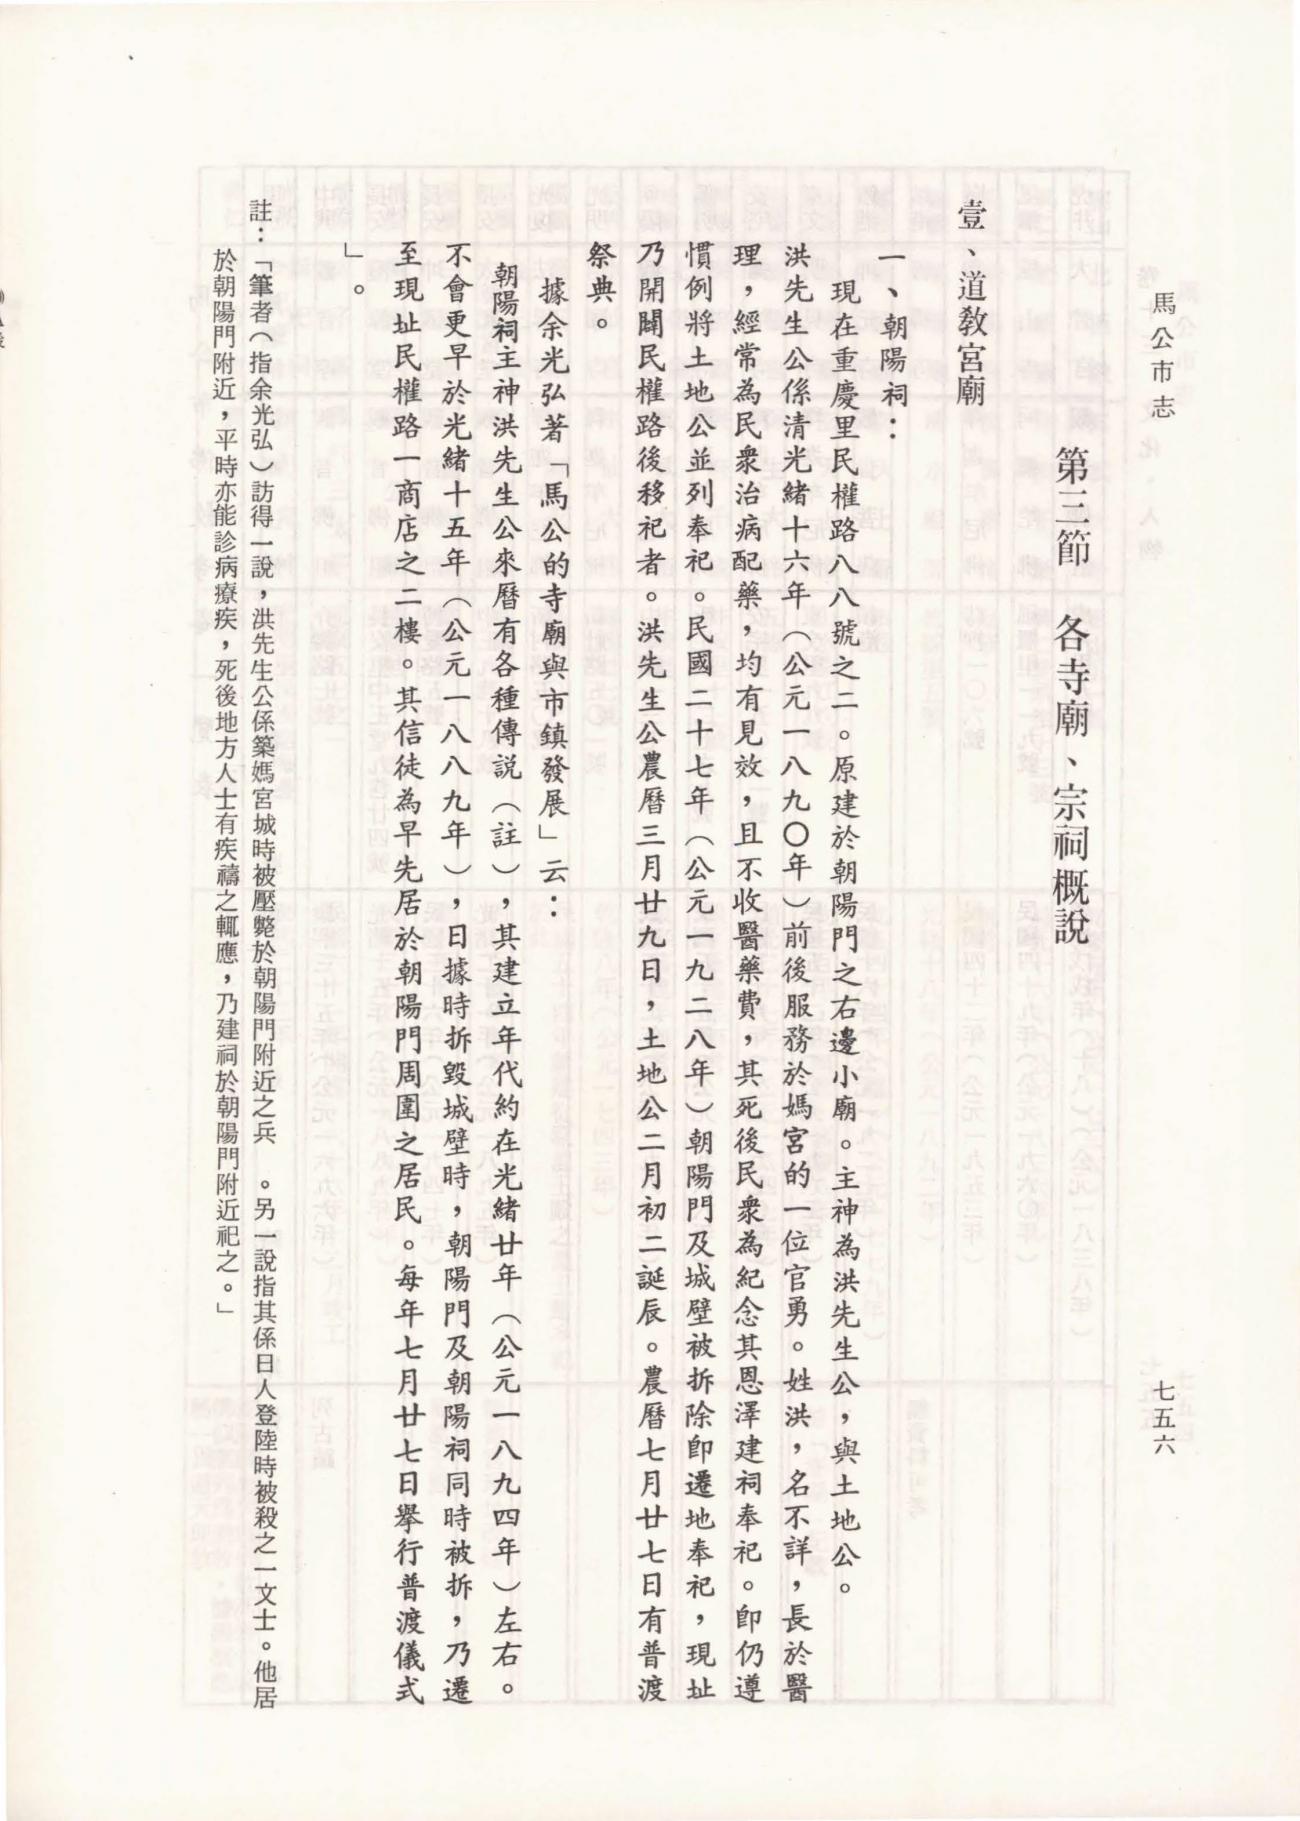 馬公市志
七五六
第三節　各寺廟、宗祠概說
壹、道教宮廟
一、朝陽祠：
現在重慶里民權路八八號之二。原建於朝陽門之右邊小廟。主神為洪先生公，與土地公。
洪先生公係清光緒十六年（公元一八九〇年）前後服務於媽宮的一位官勇。姓洪，名不詳，長於醫
理，經常為民衆治病配藥，均有見效，且不收醫藥費，其死後民衆為紀念其恩澤建祠奉祀。即仍遵
慣例將土地公並列奉祀。民國二十七年（公元一九二八年）朝陽門及城壁被拆除即遷地奉祀，現址
乃開闢民權路後移祀者。洪先生公農曆三月廿九日，土地公二月初二誕辰。農曆七月廿七日有普渡
祭典。
據余光弘著「馬公的寺廟與市鎮發展」云：
朝陽祠主神洪先生公來曆有各種傳說（註），其建立年代約在光緒廿年（公元一八九四年）左右。
不會更早於光緒十五年（公元一八八九年），日據時拆毀城壁時，朝陽門及朝陽祠同時被拆，乃遷
至現址民權路一商店之二樓。其信徒為早先居於朝陽門周圍之居民。每年七月廿七日舉行普渡儀式
」。
註：「筆者（指余光弘）訪得一說，洪先生公係築媽宮城時被壓斃於朝陽門附近之兵　。另一說指其係日人登陸時被殺之一文士。他居
於朝陽門附近，平時亦能診病療疾，死後地方人士有疾禱之輒應，乃建祠於朝陽門附近祀之。」